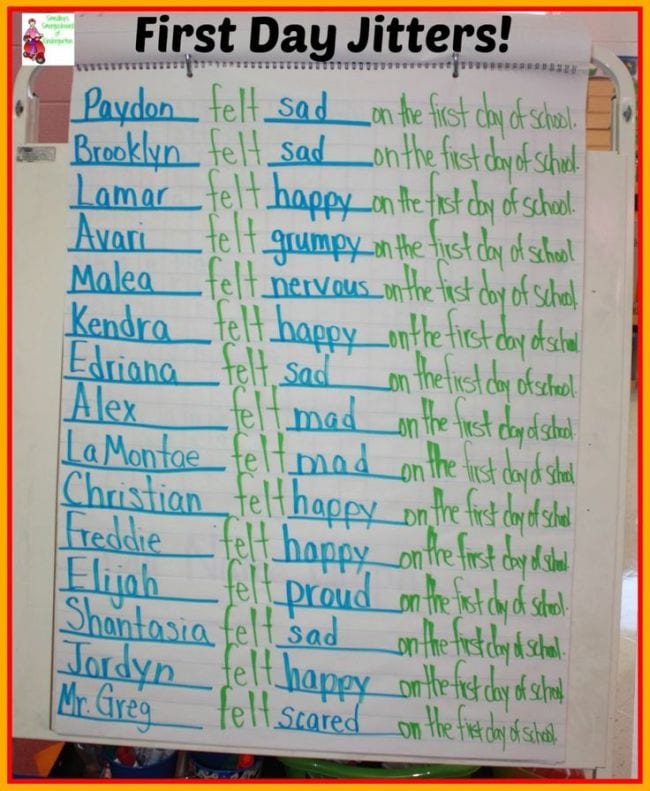 Smedley's
Smorgasboard
of
Kindergarten
First Day Jitters!
Paydon felt sad on the first day of school.
Brooklyn felt sad on the first day of school.
Lamar felt happy on the first day of school.
Avari felt grumpy on the first day of school
Malea felt nervous on the first day of school.
Kendra felt happy on the first day of school
Edriana felt sad on the first day of school.
Alex felt mad on the first day of school.
LaMontae felt mad on the first day of school
Christian felt happy on the first day of school
Freddie felt happy on the first day of school.
Elijah felt proud on the first day of school.
Shantasia felt sad on the first day of school.
Jordyn felt happy on the first day of school
Mr. Greg felt scared on the first day of school.